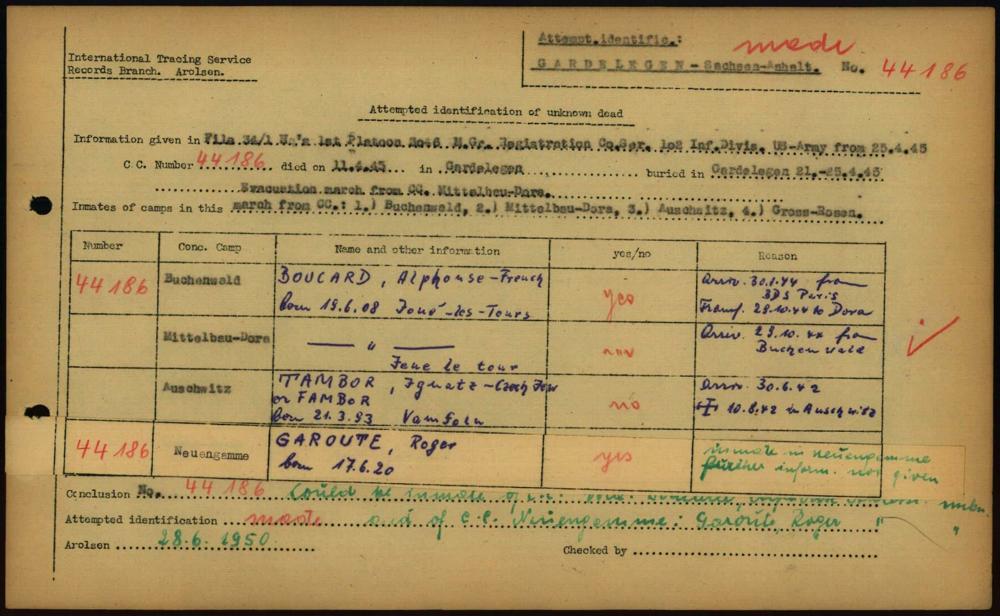 International Tracing Service
Records Branch. Arolsen.
Attempt.identific.: made
GARDELEGEN - Sachsen-Anhalt. No. 44186
Attempted identification of unknown dead
Information given in File 3A/1 1st Platoon M.Gr. Registration Co. 102 Inf.Divis. US-Army from 25.4.45
C.C. Number 44186 died on 11.4.45 in Gardelegen buried in Gardelegen 21.-25.4.45
Evacuation march from CC. Mittelbau-Dora.
Inmates of camps in this march from CC.: 1.) Buchenwald, 2.) Mittelbau-Dora, 3.) Auschwitz, 4.) Gross-Rosen.
Number Conc. Camp Name and other information yes/no Reason
44186 Buchenwald BOUCARD, Alphonse-French yes Arriv. 30.1.44 from
BDS Paris
born 19.6.08 Joué-les-Tours Transf. 29.10.44 to Dora
Mittelbau-Dora — " — Arriv. 29.10.44 from
Buchenwald
Jeue le tour
Auschwitz TAMBOR, Ignatz-Czech Jew no Arriv. 30.6.42
or FAMBOR
born 21.3.93 10.8.42 in Auschwitz
44186 Neuengamme GAROUTE, Roger yes inmate in Neuengamme
born 17.6.20 further inform. not given
Conclusion No. 44186 Could be inmate of
Attempted identification made and of C.C. Neuengamme: Garoute, Roger "
Arolsen 28.6.1950
Checked by